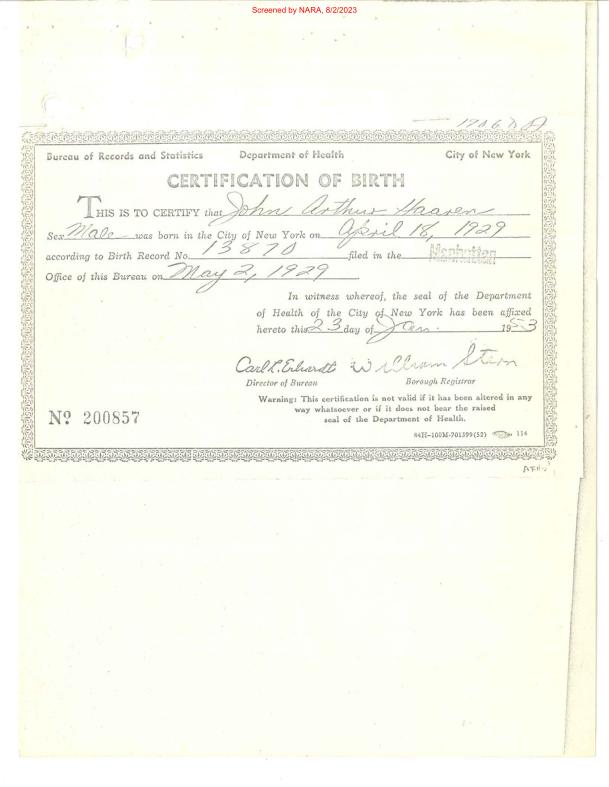 Screened by NARA, 8/2/2023
Bureau of Records and Statistics Department of Health City of New York
CERTIFICATION OF BIRTH
THIS IS TO CERTIFY that John Arthur Haaren
Sex Male was born in the City of New York on April 18, 1929
according to Birth Record No. 13870 filed in the Manhattan
Office of this Bureau on May 2, 1929
In witness whereof, the seal of the Department
of Health of the City of New York has been affixed
hereto this 23 day of Jan. 1953
Carl L. Erhardt William Stern
Director of Bureau Borough Registrar
Warning: This certification is not valid if it has been altered in any
way whatsoever or if it does not bear the raised
seal of the Department of Health.
No 200857
84H-100M-701399(52) 114